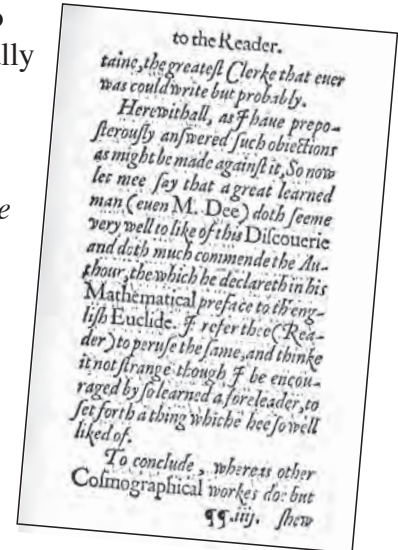 lly
e
to the Reader.
taine, the greateſt Clerke that euer
was could write but probably.
Herewithall, as I haue prepo-
ſterouſly anſwered ſuch obiections
as might be made againſt it, So now
let mee ſay that a great learned
man (euen M. Dee) doth ſeeme
very well to like of this Diſcouerie
and doth much commende the Au-
thour, the which he declareth in his
Mathematical preface to th'eng-
liſh Euclide. I refer thee (Rea-
der) to peruſe the ſame, and thinke
it not ſtrange though I be encou-
raged by ſo learned a foreleader, to
ſet forth a thing whiche hee ſo well
liked of.
To conclude, whereas other
Coſmographical workes do: but
¶¶.iiij. ſhew